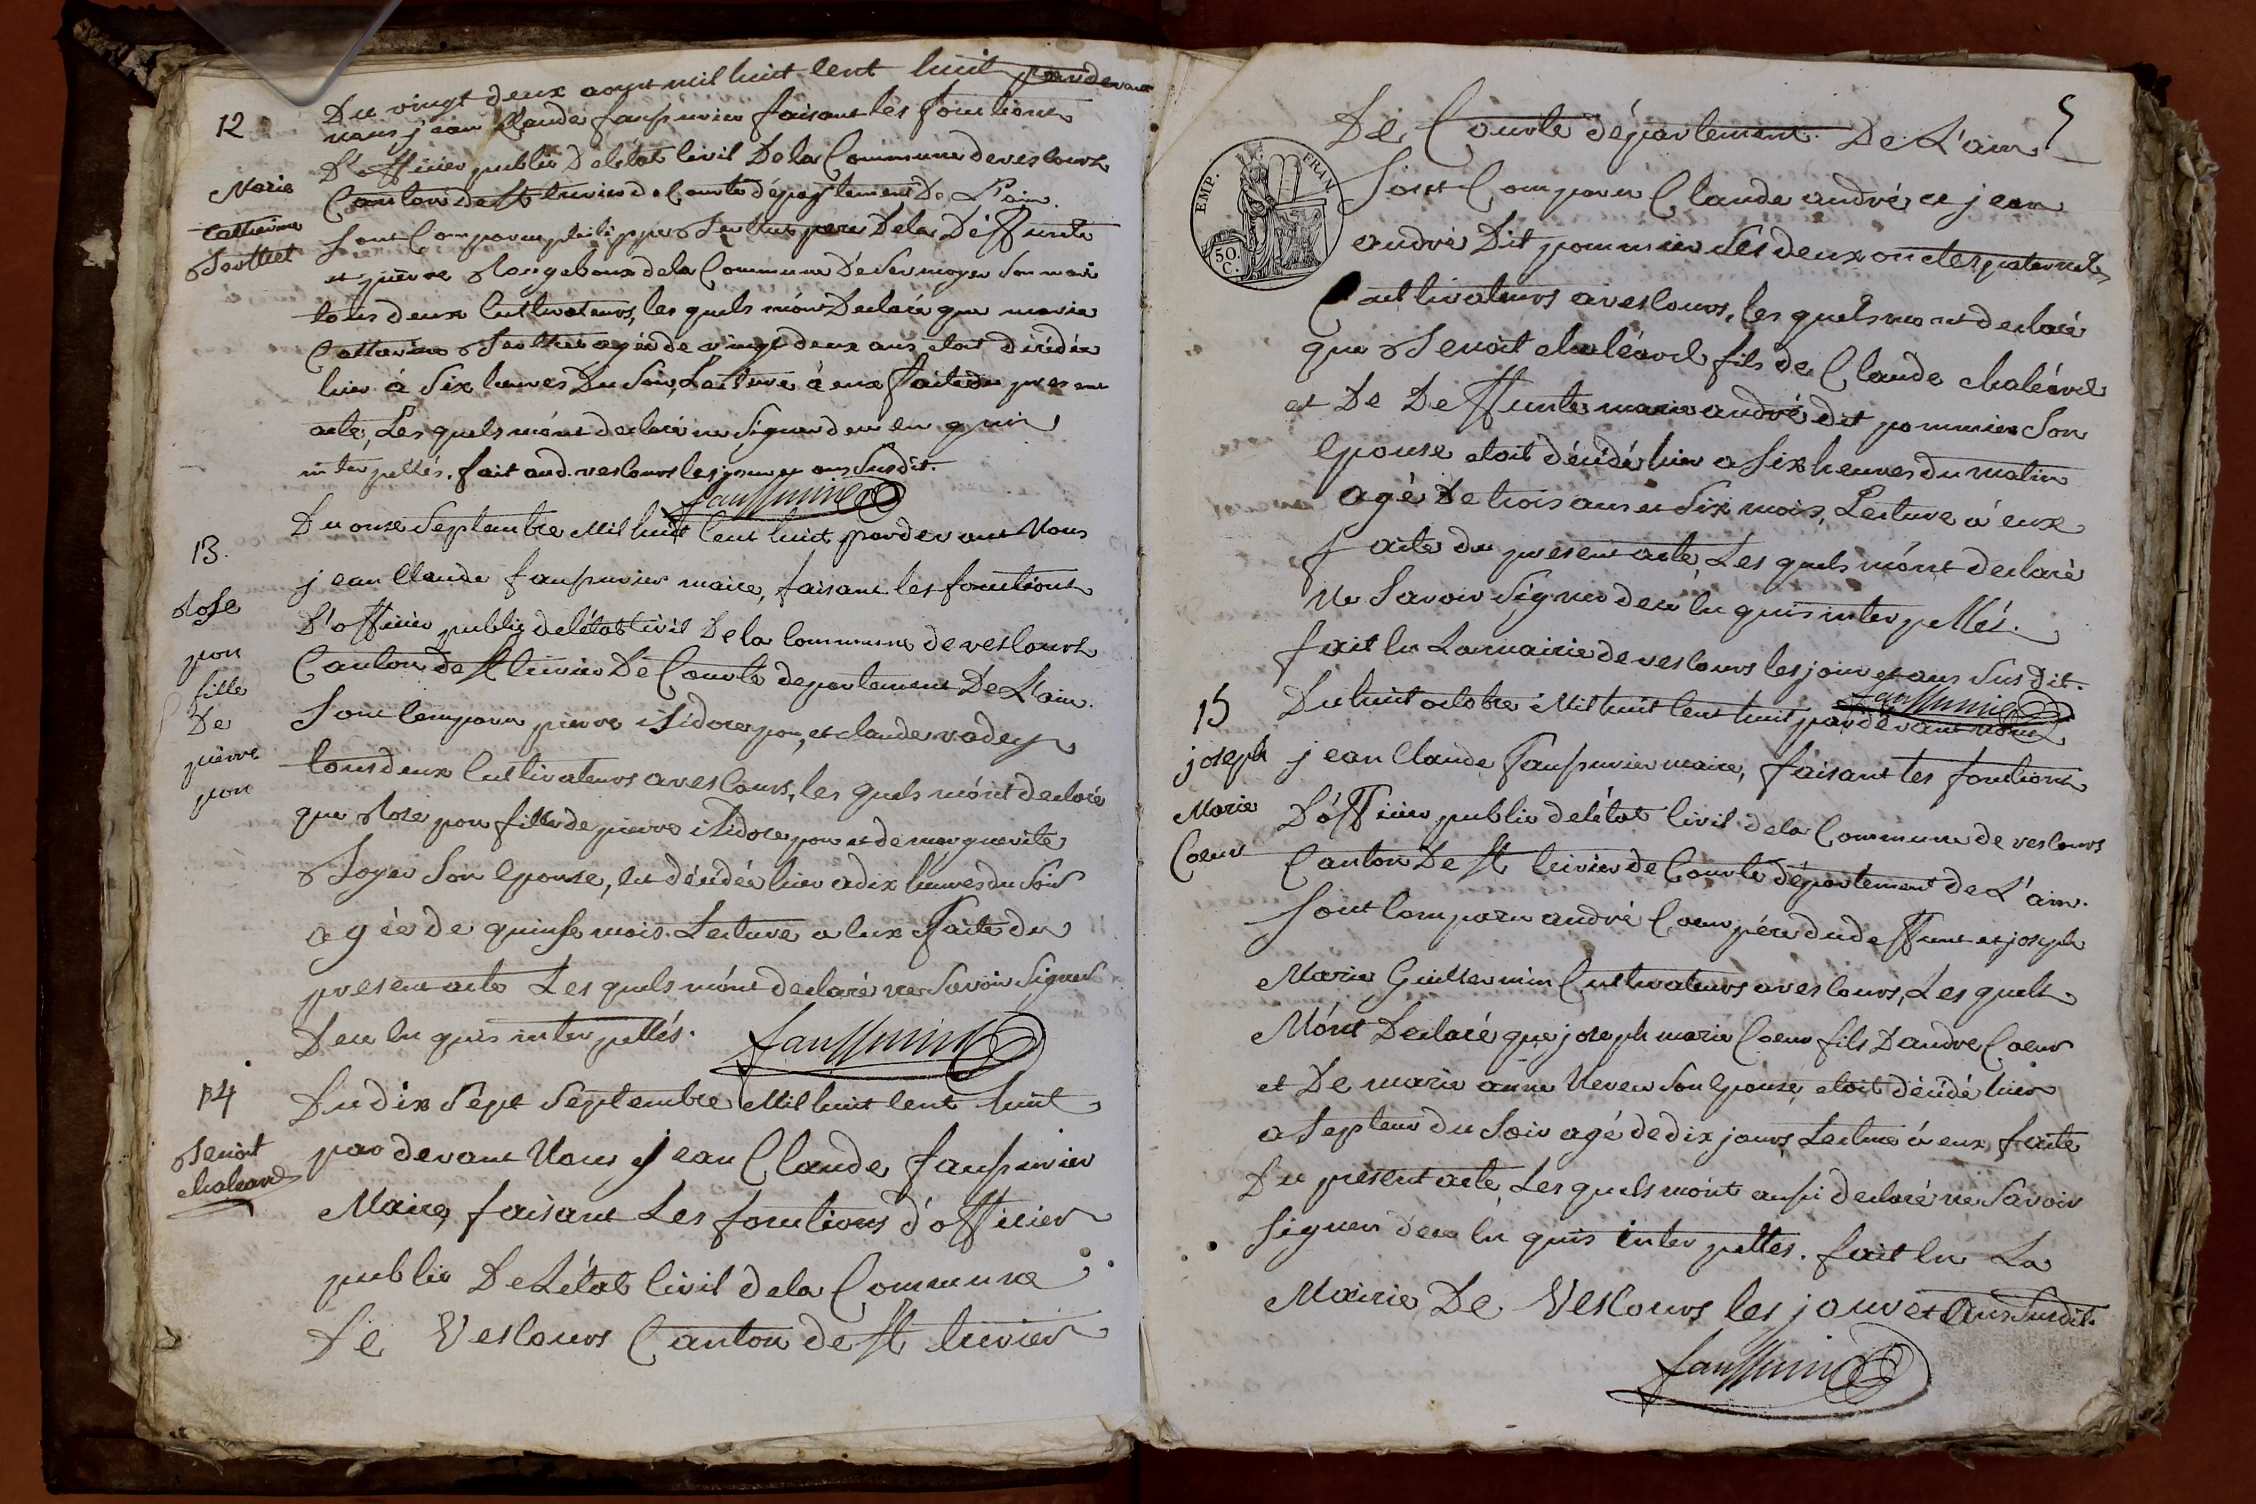 12
Marie
Catherine
Berthet
Du vingt deux aoust mil huit Cent huit pardevant
nous jean Claude faussurier faisant les fonctions
D'officier public De létat Civil De la Commune de vescours
Canton de St trivier de Courte département De L'ain.
Sont Comparu philippe Berthet pere De la Déffunte
et pierre Rongeboux de la Commune De Sermoyer Son mari
tous deux Cultivateurs, les quels m'ont Declaré que marie
Catherine Berthet agée de vingt deux ans etoit décédée
hier à Six heures Du Soir, Lecture à eux faite du present
acte, Les quels m'ont declaré ne Signer de ce en quis
interpellés. fait aud. vescours les jour et ans Susdit.
faussurier
13.
Rose
pon
fille
De
pierre
pon
Du onze Septembre Mil huit Cent huit pardevant Nous
jean Claude faussurier maire, faisant les fonctions
D'officier public de létat Civil De la Commune de vescours
Canton de St trivier De Courte departement De L'ain.
Sont Comparu pierre isidore pon, et claude
tous deux Cultivateurs a vescours, les quels m'ont declaré
que Rose pon fille de pierre isidore pon et de marguerite
Boyer Son Epouse, est décédée hier a dix heures du Soir
agée de quinse mois. Lecture a Eux Faite du
present acte Les quels m'ont declaré ne Savoir Signer
De ce En quis interpellés.
faussurier
14
Benoit
chaléard
Du dix Sept Septembre Mil huit Cent huit
par devant Nous jean Claude faussurier
Maire, faisant Les fonctions d'officier
public De L'état Civil de la Commune
De Vescours Canton de St trivier
5
De Courte département De L'ain
EMP. FRAN.
50.
C.
Sont Comparu Claude andré et jean
andré Dit pommier Ses deux oncles paternels
Cultivateurs a vescours, les quels m'ont declaré
que Benoit chaléard fils de Claude chaléard
et De Deffunte marie andré dit pommier Son
Epouse etoit décédé hier a Six heures du matin
agé De trois ans et Six mois, Lecture à eux
faite du present acte Les quels m'ont declaré
Ne Savoir Signer de ce En quis interpellés.
fait En La mairie de vescours les jour et ans Susdit.
faussurier
15
joseph
Marie
Coeur
Du huit octobre Mil huit Cent huit pardevant nous
jean Claude faussurier maire, faisant les fonctions
D'officier public de létat Civil de la Commune de vescours
Canton De St trivier de Courte département de L'ain.
Sont Comparu andré Coeur pére du deffunt et joseph
Marie Guillermin Cultivateurs a vescours, Les quels
M'ont Declaré que joseph marie Coeur fils D'andré Coeur
et De marie anne Neveu Son Epouse, etoit décédé hier
a Sept eur du Soir agé de dix jours Lecture à eux faite
Du present acte, Les quels m'ont aussi declaré ne Savoir
Signer de ce En quis interpellés. fait En La
Mairie De Vescours les jour et ans Susdit.
faussurier